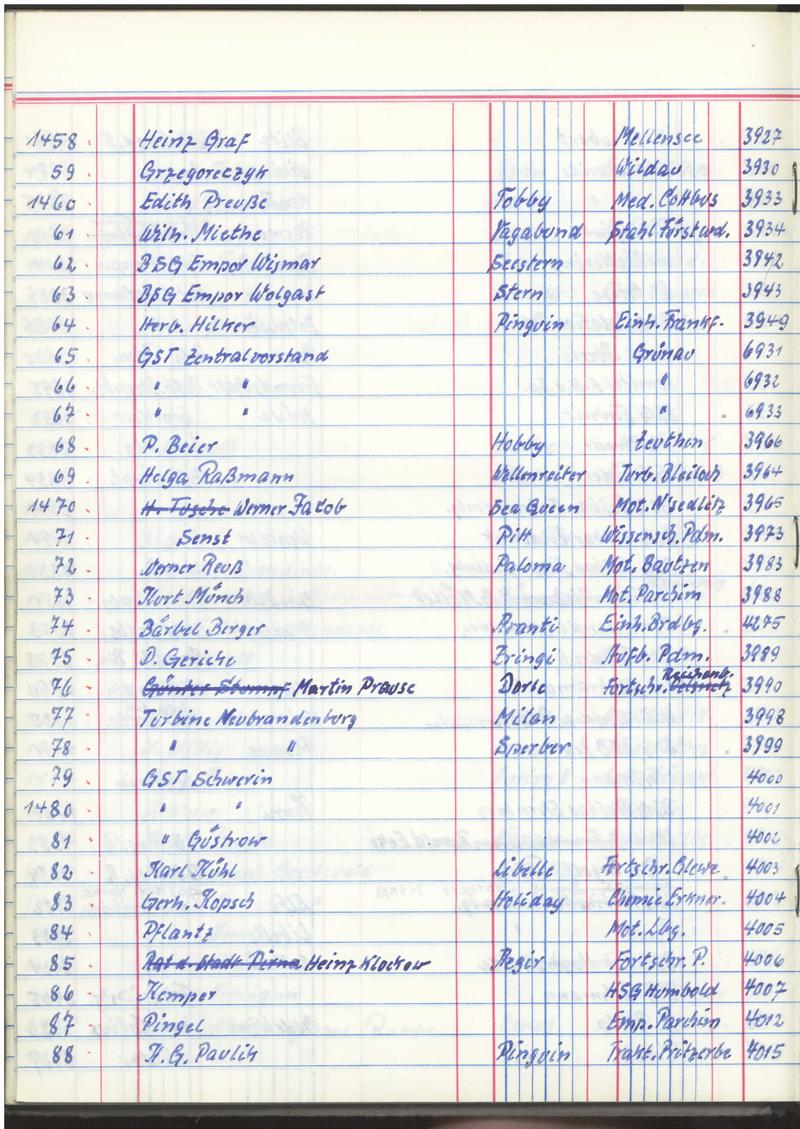 1458 Heinz Graf Mellensee 3927
59 Grzegoreczyk Wildau 3930
1460 Edith Preuße Tobby Med. Cottbus 3933
61 Wilh. Miethe Vagabund Stahl Fürstwd. 3934
62 BSG Empor Wismar Seestern 3942
63 BSG Empor Wolgast Stern 3943
64 Herb. Hilker Pinguin Einh. Frankf. 3949
65 GST Zentralvorstand Grünau 6931
66 " " " 6932
67 " " " 6933
68 P. Beier Hobby Zeuthen 3966
69 Helga Raßmann Wellenreiter Turb. Bleiloch 3964
1470 H. Tusche Werner Jakob Sea Queen Mot. N'sedlitz 3965
71 Senst Pitt Wissensch. Pdm. 3973
72 Werner Reuß Paloma Mot. Bautzen 3983
73 Kurt Münch Mot. Parchim 3988
74 Bärbel Berger Avanti Einh. Brdbg. 4275
75 D. Gericke Eringi Aufb. Pdm. 3989
76 Günter Stumpf Martin Prause Dorle Fortschr. Oelsnitz Reichenb. 3990
77 Turbine Neubrandenburg Milan 3998
78 " " Sperber 3999
79 GST Schwerin 4000
1480 " " 4001
81 " Güstrow 4002
82 Karl Kühl Libelle Fortschr. Glewe. 4003
83 Gerh. Kopsch Holiday Chemie Erkner. 4004
84 Pflantz Mot. Lbg. 4005
85 Rat d. Stadt Pirna Heinz Klockow Aegir Fortschr. P. 4006
86 Kemper HSG Humbold 4007
87 Pingel Emp. Parchim 4012
88 H. G. Paulik Pinguin Trakt. Pritzerbe 4015